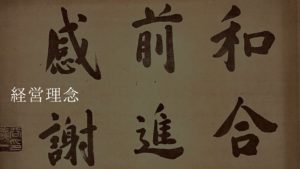 和合
前進
感謝
経営理念